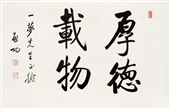 厚德
載物
一夢先生正擬
啟功